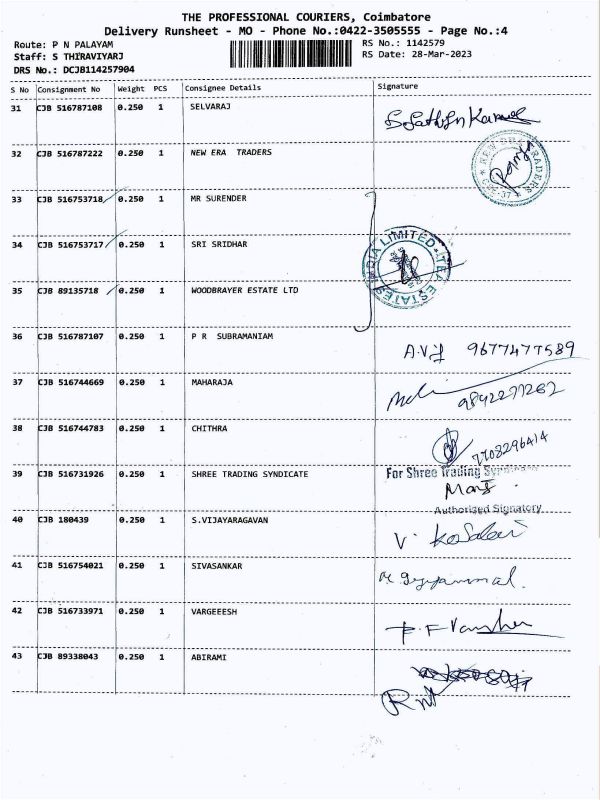 THE PROFESSIONAL COURIERS, Coimbatore
Delivery Runsheet - MO - Phone No.:0422-3505555 - Page No.:4
Route: P N PALAYAM
RS No.: 1142579
Staff: S THIRAVIYARJ
RS Date: 28-Mar-2023
DRS No.: DCJB114257904
S No Consignment No Weight PCS Consignee Details Signature
31 CJB 516787108 0.250 1 SELVARAJ
32 CJB 516787222 0.250 1 NEW ERA TRADERS
33 CJB 516753718 0.250 1 MR SURENDER
34 CJB 516753717 0.250 1 SRI SRIDHAR
35 CJB 89135718 0.250 1 WOODBRAYER ESTATE LTD
36 CJB 516787107 0.250 1 P R SUBRAMANIAM
9677477589
37 CJB 516744669 0.250 1 MAHARAJA
9842277262
38 CJB 516744783 0.250 1 CHITHRA
7708296414
39 CJB 516731926 0.250 1 SHREE TRADING SYNDICATE For Shree Trading
Authorized Signatory
40 CJB 180439 0.250 1 S.VIJAYARAGAVAN
41 CJB 516754021 0.250 1 SIVASANKAR
42 CJB 516733971 0.250 1 VARGEEESH
43 CJB 89338043 0.250 1 ABIRAMI